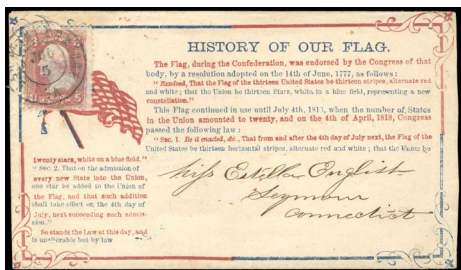 HISTORY OF OUR FLAG.
The Flag, during the Confederation, was endorsed by the Congress of that
body, by a resolution adopted on the 14th of June, 1777, as follows:
"Resolved, That the Flag of the thirteen United States be thirteen stripes, alternate red
and white; that the Union be thirteen Stars, white in a blue field, representing a new
constellation."
This Flag continued in use until July 4th, 1811, when the number of States
in the Union amounted to twenty, and on the 4th of April, 1818, Congress
passed the following law:
"SEC. 1. Be it enacted, &c., That from and after the 4th day of July next, the Flag of the
United States be thirteen horizontal stripes, alternate red and white; that the Union be
twenty stars, white on a blue field."
"SEC. 2. That on the admission of
every new State into the Union,
one star be added to the Union of
the Flag, and that such addition
shall take effect on the 4th day of
July, next succeeding such admis-
sion."
So stands the Law at this day, and
is unalterable but by law
Miss Estella English
Seymour
Connecticut